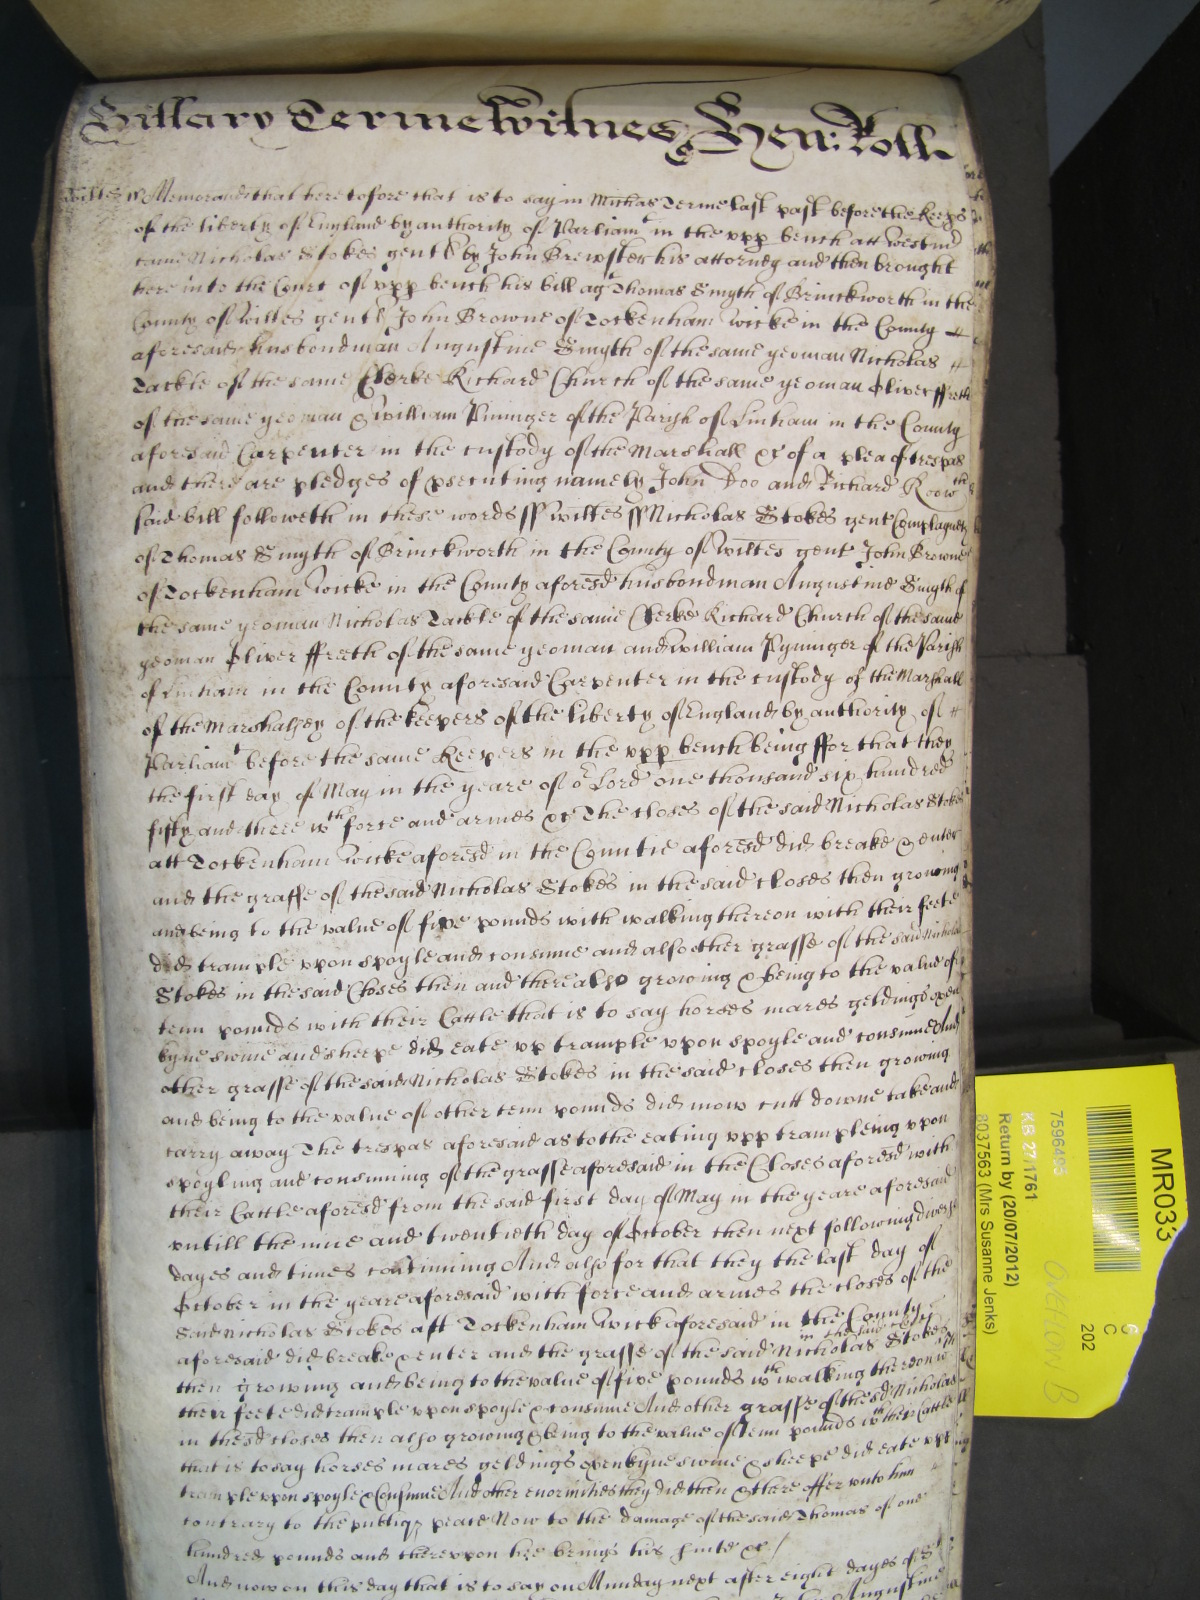 Hillary Terme Witnes Hen: Rolle
Wiltes ss Memorand that heretofore that is to say in Michas Terme last past before the Keeps
of the liberty of England by authority of Parliamt in the upp bench att Westmr
came Nicholas Stokes gent by John Brewster his attorney and then brought
here into the Court of upp bench his bill agt Thomas Smyth of Brinckworth in the
County of Wiltes gent John Browne of Tockenham Wicke in the County
aforesaid husbondman Augustine Smyth of the same yeoman Nicholas
Tackle of the same Clerke Richard Church of the same yeoman Oliver ffreth
of the same yeoman & William Pininger of the Parish of Linham in the County
aforesaid Carpenter in the custody of the Marshall &c of a plea of trespas
and there are pledges of psecuting namely John Doo and Richard Roo wch
said bill followeth in these words ss Wiltes ss Nicholas Stokes gent Complayneth
of Thomas Smyth of Brinckworth in the County of Wiltes gent John Browne
of Tockenham Wicke in the County aforesd husbondman Augustine Smyth of
the same yeoman Nicholas Tackle of the same Clerke Richard Church of the same
yeoman Oliver ffreth of the same yeoman and William Pyninger of the Parish
of Linham in the County aforesaid Carpenter in the custody of the Marshall
of the Marshalsey of the keepers of the liberty of England by authority of
Parliamt before the same Keepers in the upp bench being ffor that they
the first day of May in the yeare of or Lord one thousand six hundred
fifty and three wth force and armes &c The closes of the said Nicholas Stokes
att Tockenham Wicke aforesd in the Countie aforesd did breake & enter
and the grasse of the said Nicholas Stokes in the said closes then growing
and being to the value of five pounds with walking thereon with their feete
did trample upon spoyle and consume and also other grasse of the said Nicholas
Stokes in the said Closes then and there also growing & being to the value of
tenn pounds with their Cattle that is to say horses mares geldings oxen
kyne swine and sheepe did eate up trample upon spoyle and consume And
other grasse of the said Nicholas Stokes in the said closes then growing
and being to the value of other tenn pounds did mow cutt downe take and
carry away The trespas aforesaid as to the eating upp trampleing upon
spoyling and consuming of the grasse aforesaid in the Closes aforesd with
their Cattle aforesd from the said first day of May in the yeare aforesaid
untill the nine and twentieth day of October then next following divers
dayes and times continuing And also for that they the last day of
October in the yeare aforesaid with force and armes the closes of the
said Nicholas Stokes att Tockenham Wick aforesaid in the County
aforesaid did breake & enter and the grasse of the said Nicholas Stokes in the said closes
then growing and being to the value of five pounds wth walking thereon wth
their feete did trample upon spoyle & consume And other grasse of the sd Nicholas
in the sd closes then also growing & being to the value of tenn pounds wth their Cattle
that is to say horses mares geldings oxen kyne swine & sheepe did eate upp
trample upon spoyle & Consume And other enormities they did then & there offer unto him
contrary to the publiq peace Now to the damage of the said Thomas of one
hundred pounds and thereupon hee brings his suite &c /
And now on this day that is to say on Munday next after eight dayes of St
Augustine
MR033
6
C
202
7596495
KB 27/1761
Return by (20/07/2012)
8037563 (Mrs Susanne Jenks)